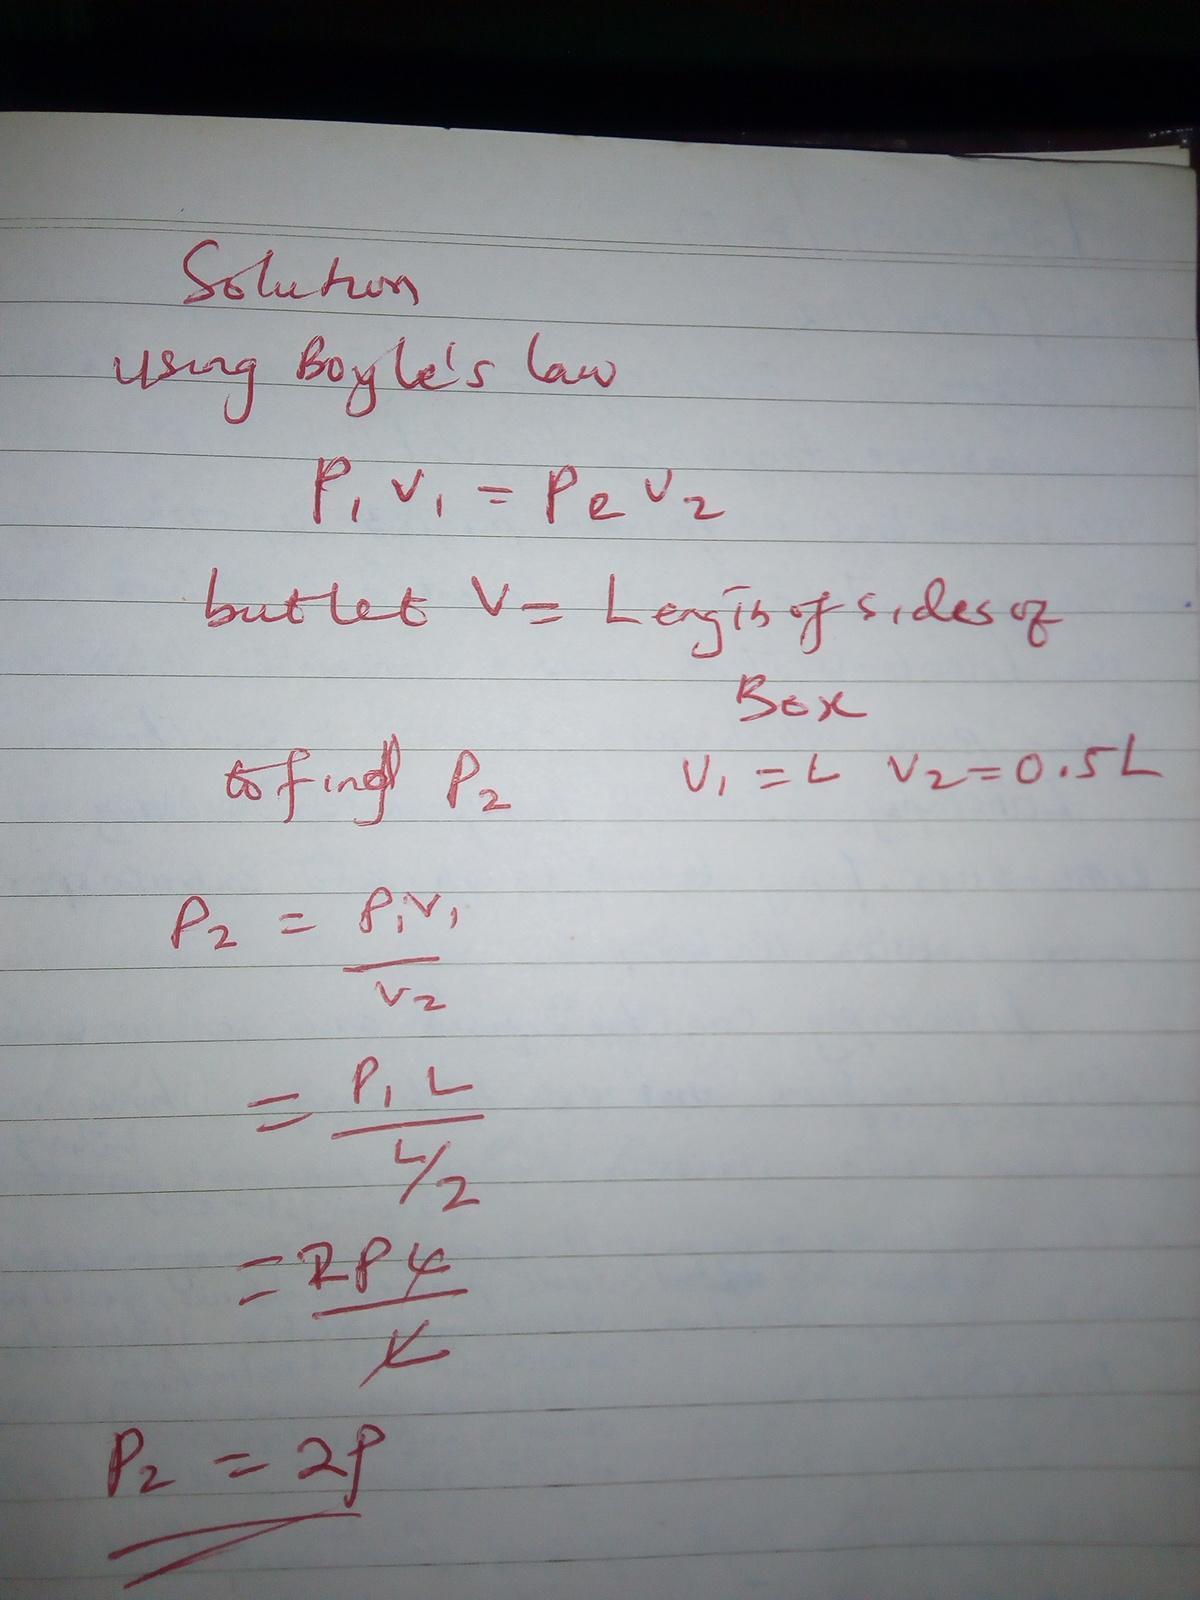 Solution
using Boyle's law
P₁ V₁ = P₂ V₂
but let V = Length of sides of
Box
to find P₂ V₁ = L V₂ = 0.5L
P₂ = P₁V₁
V₂
= P₁ L
L/2
= 2PL
L
P₂ = 2P